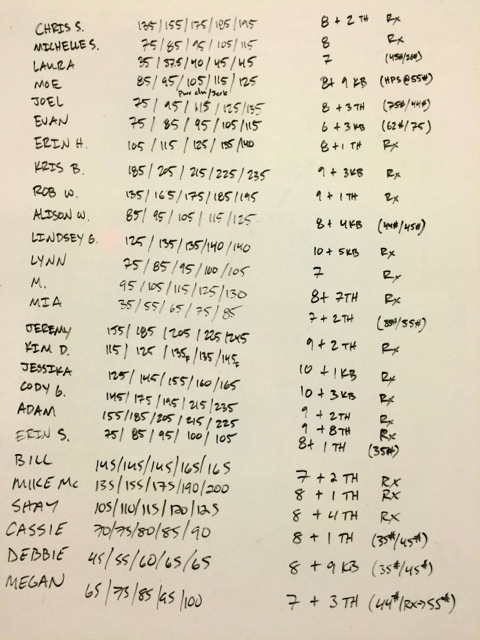 CHRIS S. 135/155/175/185/195 8 + 2 TH Rx
MICHELLE S. 75/85/95/105/115 8 Rx
LAURA 35/37.5/40/45/45 7 (45#/26#)
MOE 85/95/105/115/125 8 + 9 KB (HPS @55#)
JOEL 75/95/115/125/135 8 + 3 TH (75#/44#)
EVAN 75/85/95/105/115 6 + 3 KB (62#/75)
ERIN H. 105/115/125/135/140 8 + 1 TH Rx
KRIS B. 185/205/215/225/235 9 + 3 KB Rx
ROB W. 135/165/175/185/195 9 + 1 TH Rx
ALISON W. 85/95/105/115/125 8 + 4 KB (44#/45#)
LINDSEY G. 125/135/135/140/140 10 + 5 KB Rx
LYNN 75/85/95/100/105 7 Rx
M. 95/105/115/125/130 8 + 7 TH Rx
MIA 35/55/65/75/85 7 + 2 TH (35#/55#)
JEREMY 155/185/205/225/245 9 + 2 TH Rx
KIM D. 115/125/135F/135/145F 10 + 1 KB Rx
JESSIKA 125/145/155/160/165 10 + 3 KB Rx
CODY G. 145/175/195/215/235 9 + 2 TH Rx
ADAM 155/185/205/215/225 9 + 8 TH Rx
ERIN S. 75/85/95/100/105 8 + 1 TH (35#)
BILL 145/145/145/165/165 7 + 2 TH Rx
MIKE MC 135/155/175/190/200 8 + 1 TH Rx
SHAY 105/110/115/120/125 8 + 4 TH Rx
CASSIE 70/75/80/85/90 8 + 1 TH (35#/45#)
DEBBIE 45/55/60/65/65 8 + 9 KB (35#/45#)
MEGAN 65/75/85/95/100 7 + 3 TH (44#/Rx→55#)